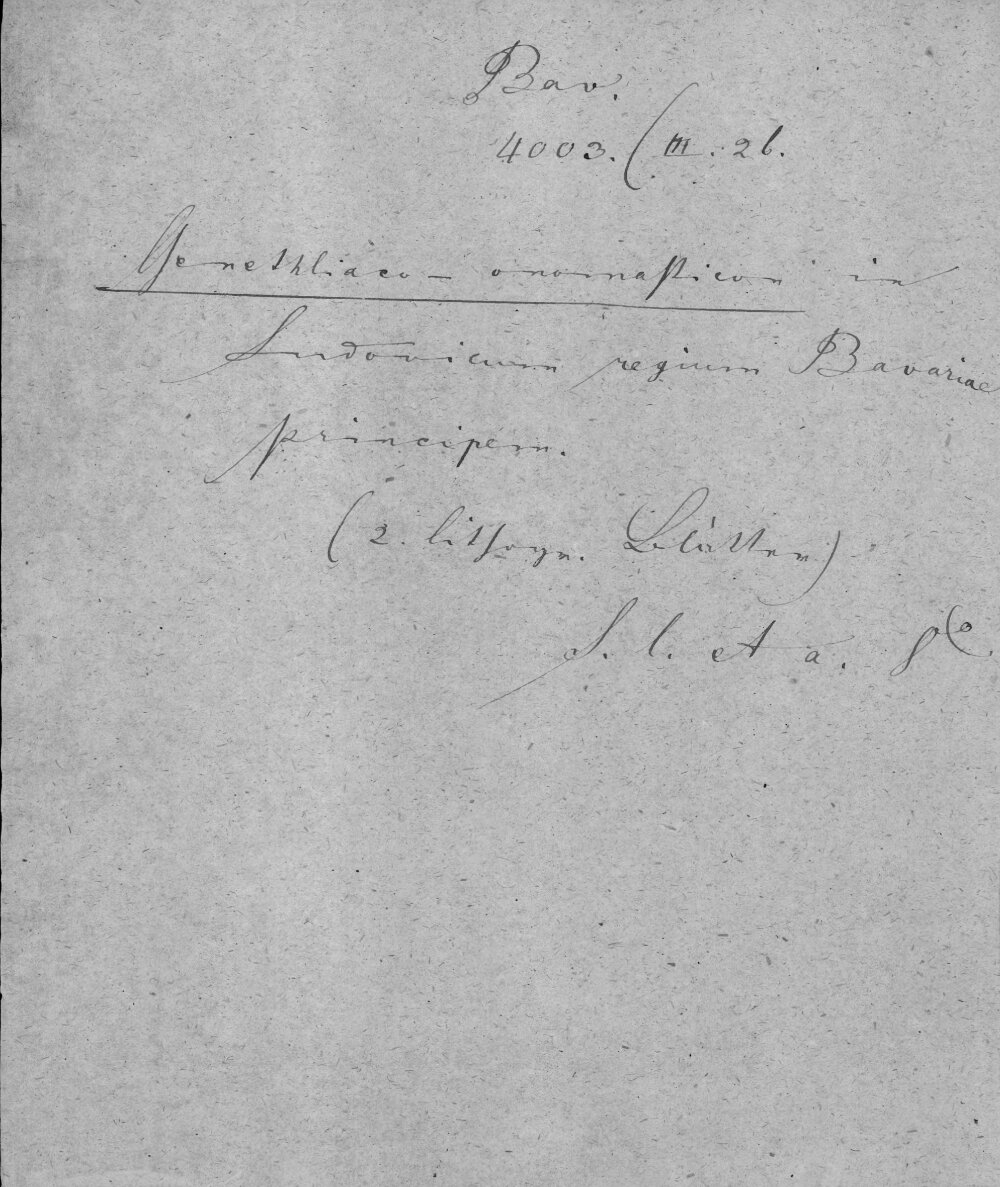 Bav.
4003. (III. 26.
Genethliaco- onomasticon in
Ludovicum regium Bavariae
principem.
(2. lithogr. Blätter)
S. l. et a. 8°.